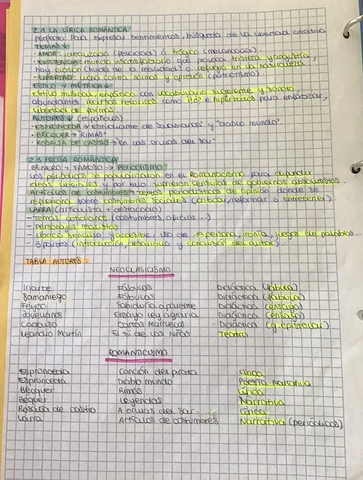 2.2 LA LÍRICA ROMÁNTICA
perfecta para expresar sentimientos, búsqueda de la libertad creativa
TEMAS ↓
- AMOR: idealizado (felicidad) o trágico (melancolía)
- EXISTENCIA: mundo insatisfactorio que produce tristeza y angustia,
hay evasión (huida de la realidad) o refugio en la naturaleza
- LIBERTAD: lucha contra normas y opresión (patriotismo)
ESTILO Y MÉTRICA ↓
estilo musical, enfático con vocabulario sugerente y sonoro,
abundantes recursos retóricos como e hipérboles para enfatizar,
libertad de formas
AUTORES ↓ (españoles)
- ESPRONCEDA → estudiante de Salamanca" y "diablo mundo"
- BÉCQUER → RIMAS"
- ROSALÍA DE CASTRO → En las orillas del sar
2.3 PROSA ROMÁNTICA
GÉNERO + FAMOSO → PERIODISMO
Los periódicos se popularizaron en el Romanticismo para difundir
ideas liberales y por ello sufrieron censura de gobiernos absolutistas
Artículos de costumbres → textos periodísticos de opinión donde se
reflexiona sobre costumbres sociales (criticar/reformar o entretener)
LARRA (artículos +
- Temas cotidianos (costumbres, oficios ...)
- Personajes realistas
- Léxico sencillo y accesible, uso de 1ª persona, ironía, juegos de palabras
- 3 partes (introducción, desarrollo y conclusión del autor)
TABLA AUTORES:
NEOCLASICISMO
Iriarte Fábulas Didáctica (fábula)
Samaniego Fábulas Didáctica (fábula)
Feijoo Sabiduría aparente Didáctica (ensayo)
Jovellanos Ensayo ley agraria Didáctica (ensayo)
Cadalso Cartas Marruecas Didáctica (g. epistolar)
Leandro Martín Sí de las Niñas Teatro
ROMANTICISMO
Espronceda Canción del pirata Lírica
Espronceda Diablo mundo Poesía Narrativa
Bécquer Rimas Lírica
Bequer Leyendas Narrativa
Rosalía de castro A orillas del sar Lírica
Larra Artículos de costumbres Narrativa (periódicos)